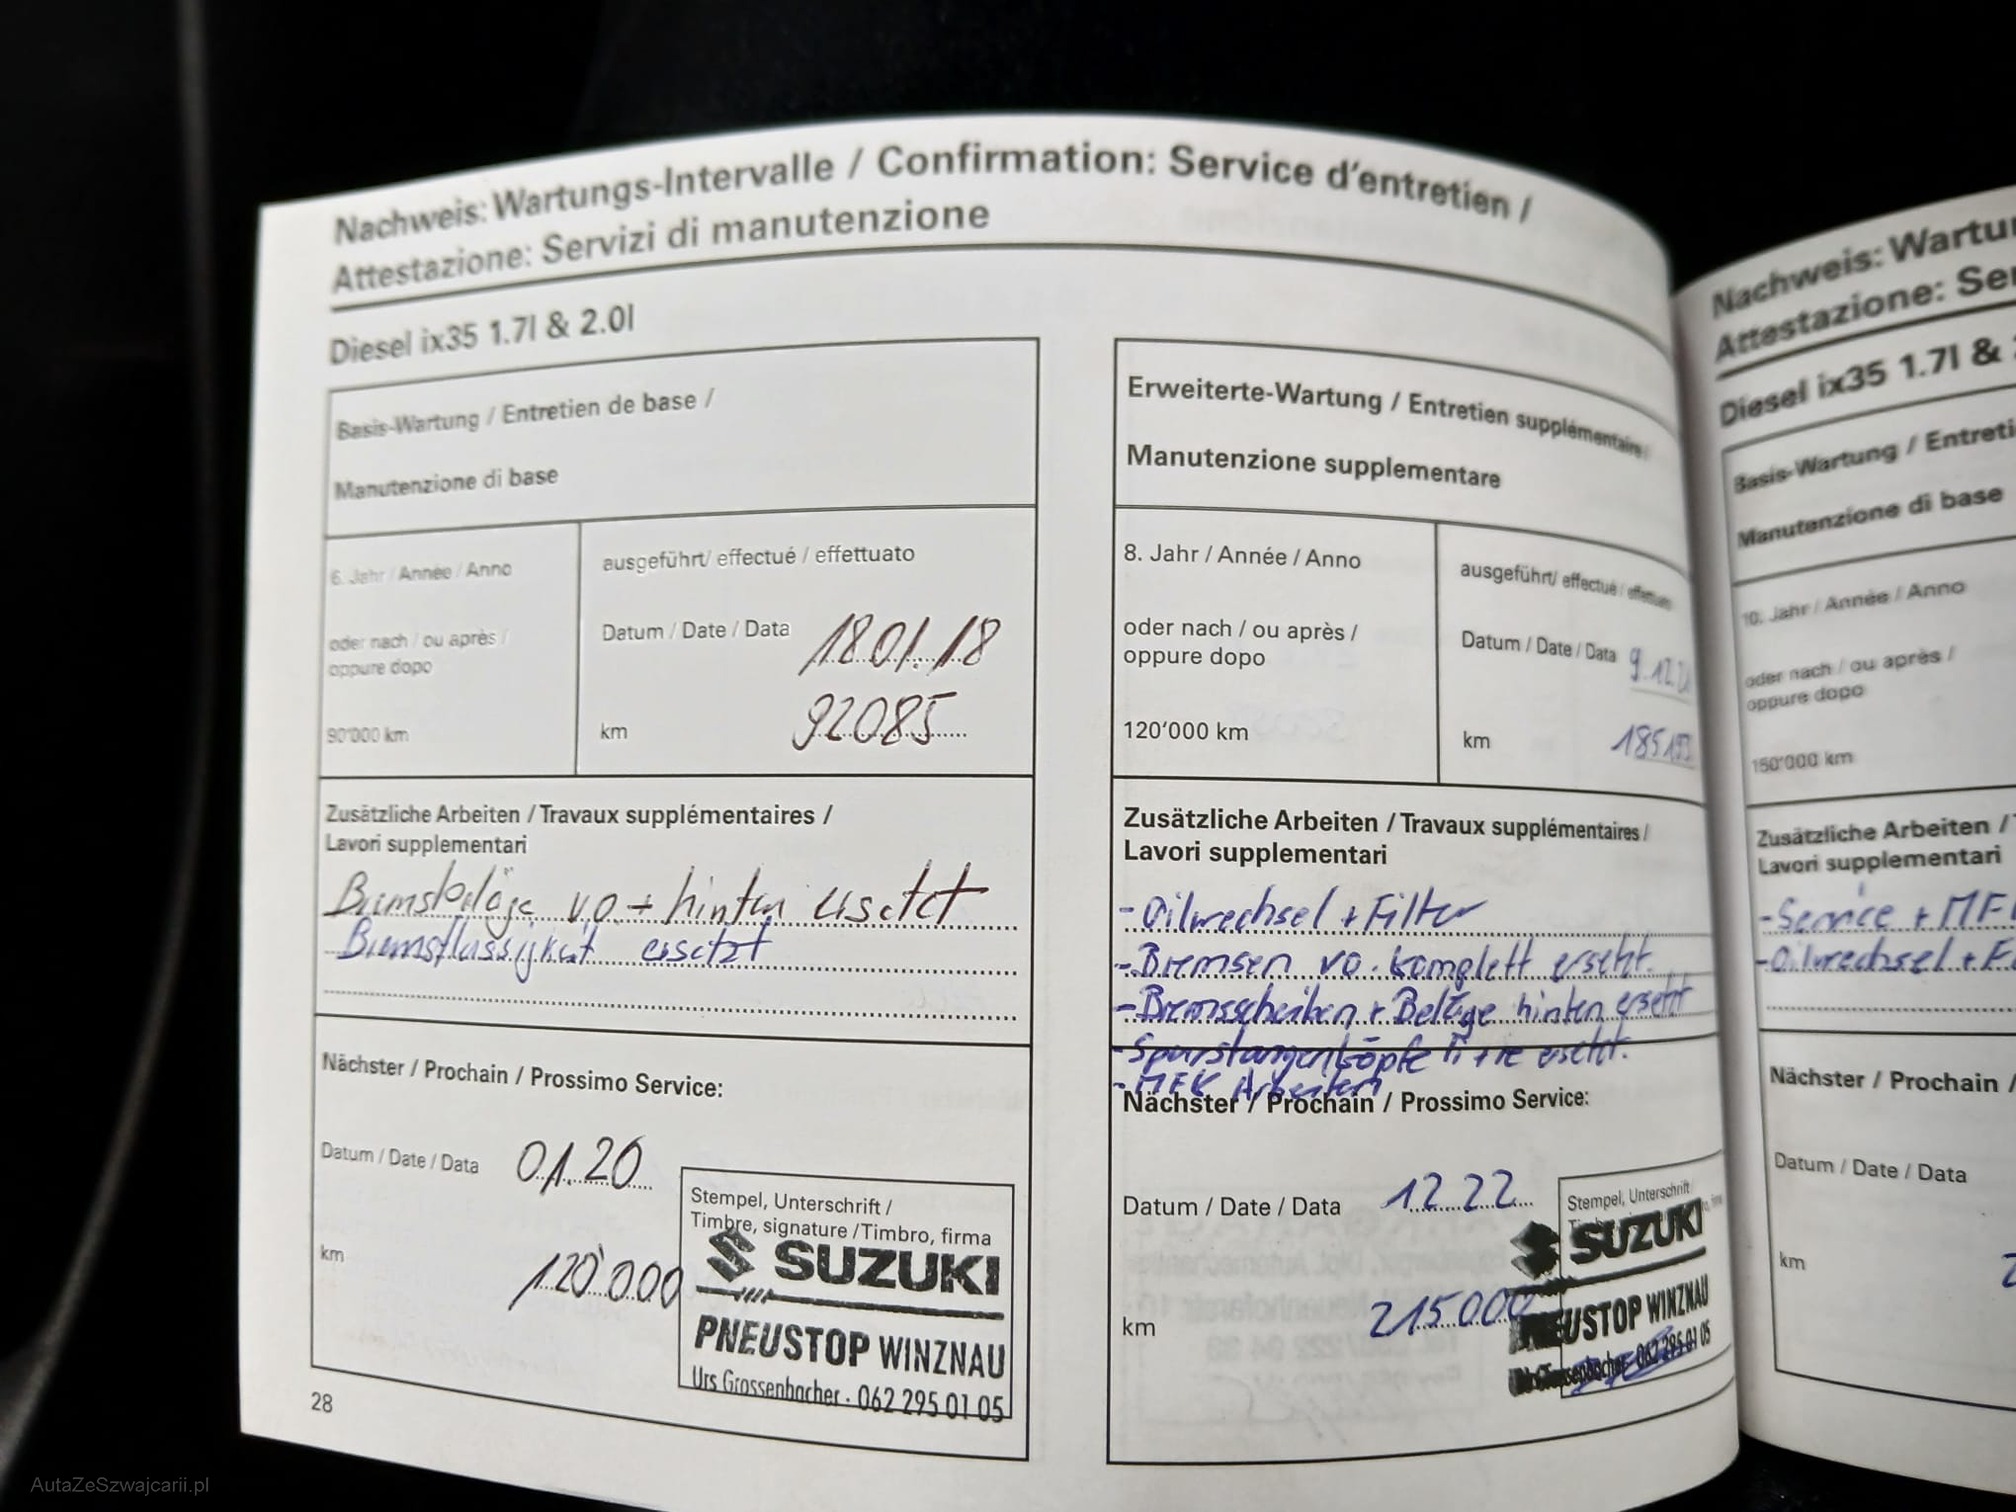 Nachweis: Wartungs-Intervalle / Confirmation: Service d'entretien /
Attestazione: Servizi di manutenzione
Diesel ix35 1.7l & 2.0l
Basis-Wartung / Entretien de base /
Manutenzione di base
6. Jahr / Année / Anno
oder nach / ou après /
oppure dopo
90'000 km
ausgeführt/ effectué / effettuato
Datum / Date / Data 18.01.18
km 92085
Zusätzliche Arbeiten / Travaux supplémentaires /
Lavori supplementari
Bremsbeläge vo + hinten ersetzt
Bremsflüssigkeit ersetzt
Nächster / Prochain / Prossimo Service:
Datum / Date / Data 01.20
km 120'000
Stempel, Unterschrift /
Timbre, signature /Timbro, firma
SUZUKI
PNEUSTOP WINZNAU
Urs Grossenbacher · 062 295 01 05
28
Erweiterte-Wartung / Entretien supplémentaire /
Manutenzione supplementare
8. Jahr / Année / Anno
oder nach / ou après /
oppure dopo
120'000 km
ausgeführt/ effectué / effettuato
Datum / Date / Data 9.12.
km
Zusätzliche Arbeiten / Travaux supplémentaires /
Lavori supplementari
- Oilwechsel + Filter
- Bremsen vo. komplett ersetzt.
- Bremsscheiben + Beläge hinten ersetzt
- Spurstangenköpfe li + re ersetzt.
- MFK Arbeiten
Nächster / Prochain / Prossimo Service:
Datum / Date / Data 12.22
km 215000
Stempel, Unterschrift
SUZUKI
PNEUSTOP WINZNAU
Urs Grossenbacher · 062 295 01 05
Nachweis: Wartu
Attestazione: Se
Diesel ix35 1.7l &
Basis-Wartung / Entreti
Manutenzione di base
10. Jahr / Année / Anno
oder nach / ou après /
oppure dopo
150'000 km
Zusätzliche Arbeiten /
Lavori supplementari
- Service + MF
- Oilwechsel + F
Nächster / Prochain /
Datum / Date / Data
km
AutaZeSzwajcarii.pl